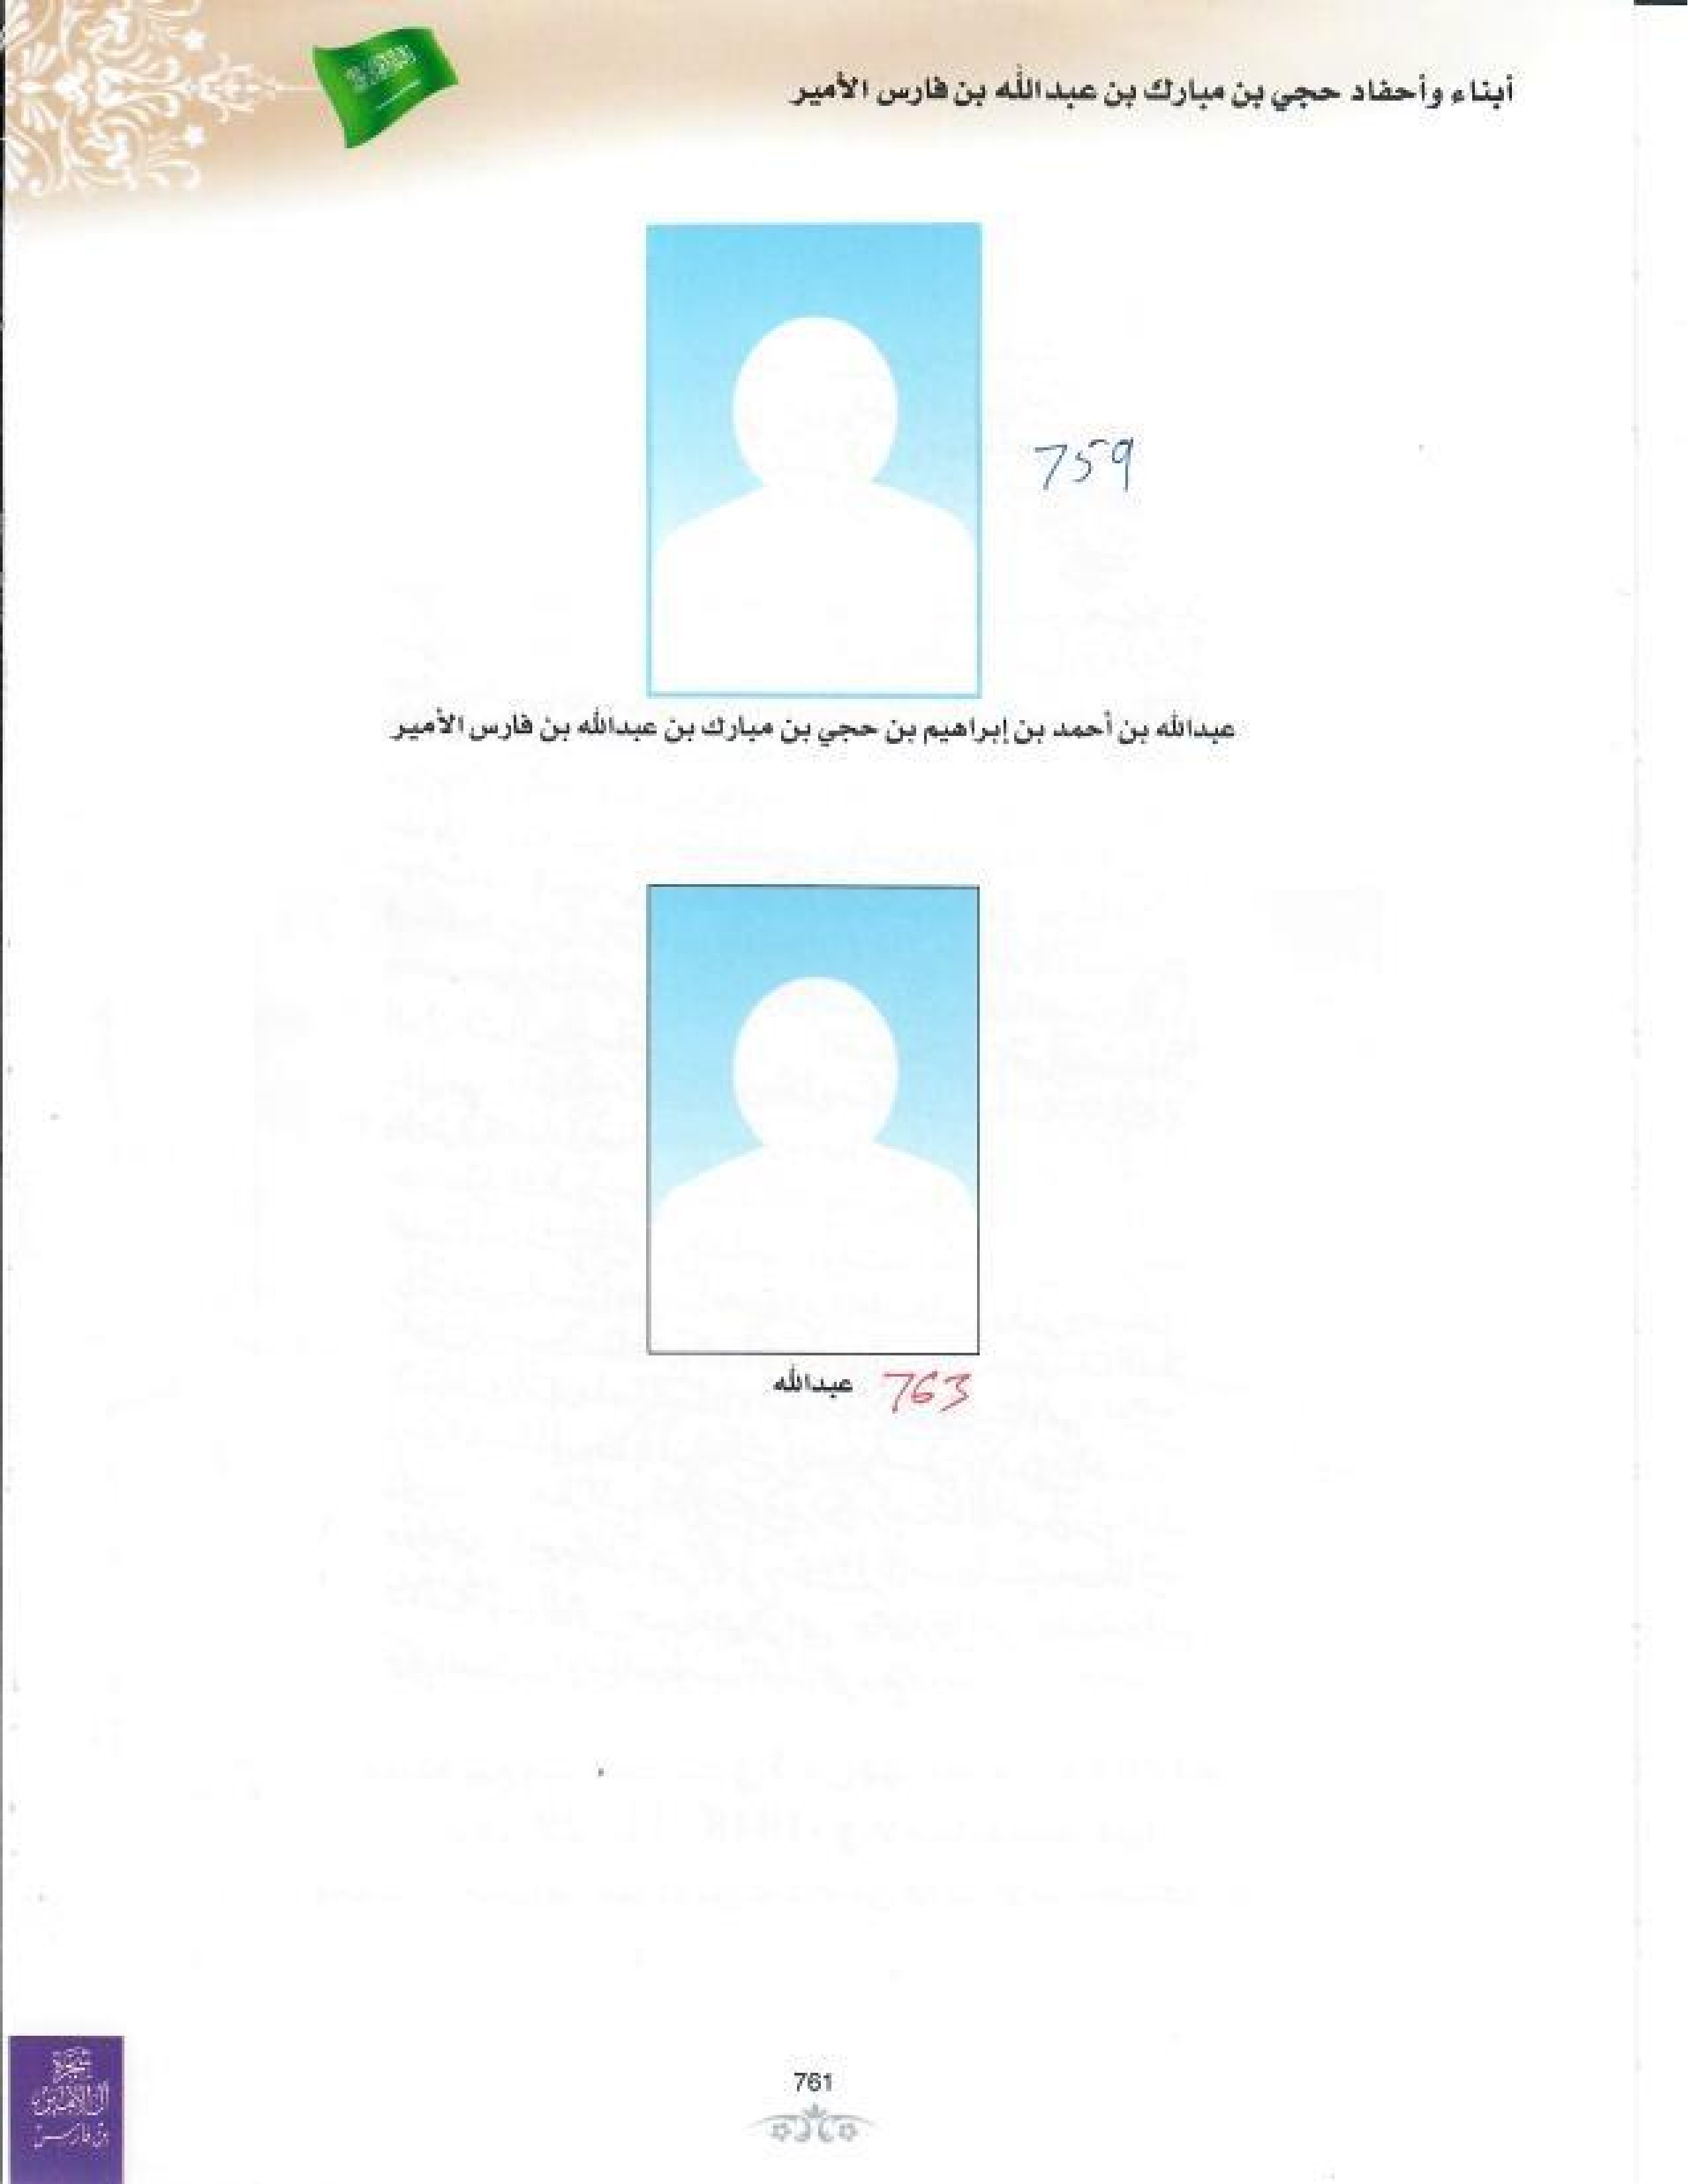 أبناء وأحفاد حجي بن مبارك بن عبدالله بن فارس الأمير
759
عبدالله بن أحمد بن إبراهيم بن حجي بن مبارك بن عبدالله بن فارس الأمير
763 عبدالله
761
شجرة
آل الأمير
بن فارس